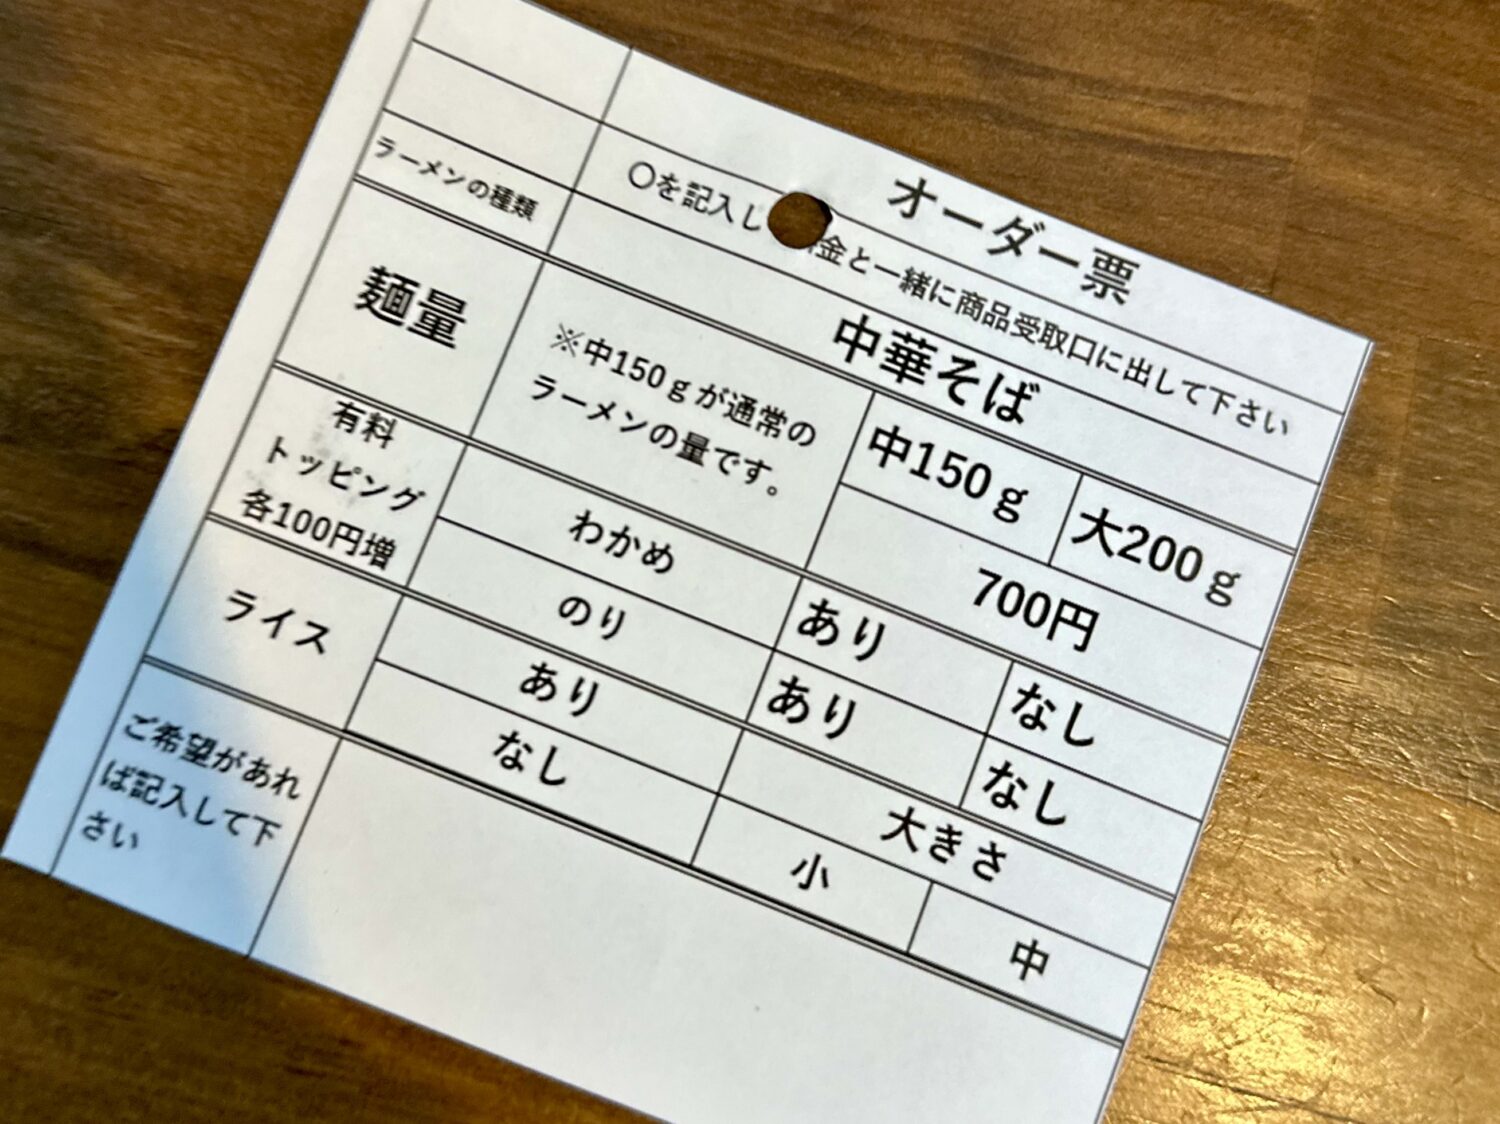 オーダー票
〇を記入し 金と一緒に商品受取口に出して下さい
ラーメンの種類
中華そば
麺量
※中150ｇが通常の
ラーメンの量です。
中150ｇ
大200ｇ
700円
有料
トッピング
各100円増
わかめ
あり
なし
のり
あり
なし
ライス
あり
大きさ
なし
小
中
ご希望があれ
ば記入して下
さい